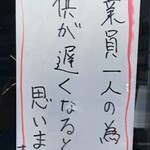 業員一人の為
供が遅くなると
思いま